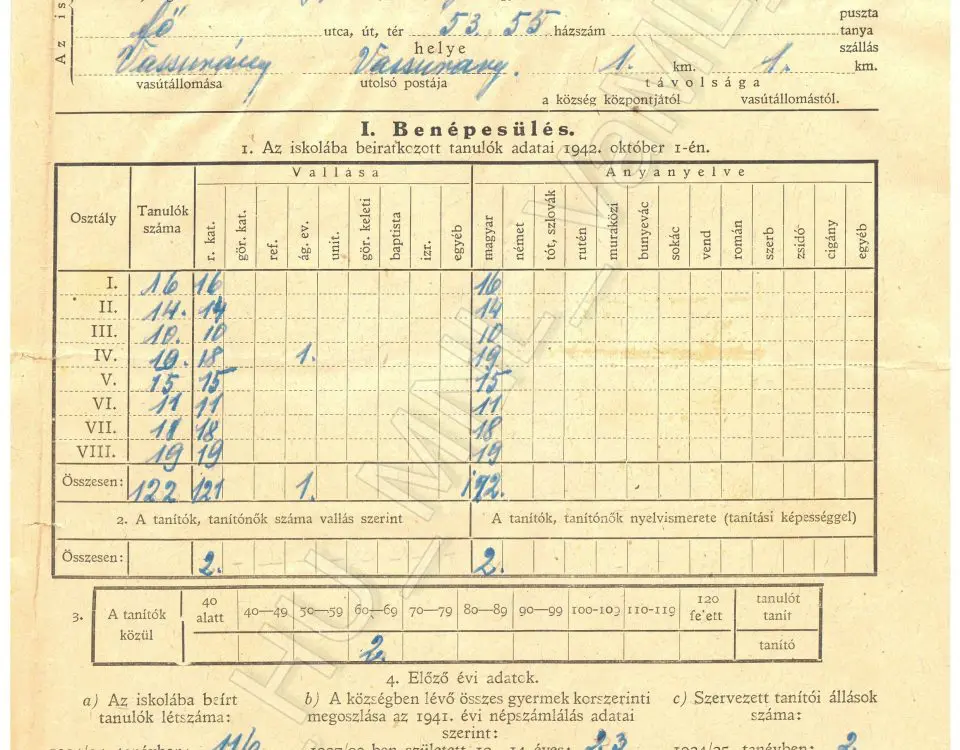 Az is
puszta
fő utca, út, tér 53. 55 házszám tanya
helye szállás
Vassurány Vassurány. 1. km. 1. km.
vasútállomása utolsó postája távolsága
a község központjától vasútállomástól.
I. Benépesülés.
1. Az iskolába beiratkozott tanulók adatai 1942. október 1-én.
Osztály Tanulók száma Vallása Anyanyelve
r. kat. gör. kat. ref. ág. ev. unit. gör. keleti baptista izr. egyéb magyar német tót, szlovák rutén muraközi bunyevác sokác vend román szerb zsidó cigány egyéb
I. 16 16 16
II. 14. 14 14
III. 10. 10 10
IV. 19. 18 1. 19
V. 15 15 15
VI. 11 11 11
VII. 18 18 18
VIII. 19 19 19
Összesen: 122 121 1. 122.
2. A tanítók, tanítónők száma vallás szerint A tanítók, tanítónők nyelvismerete (tanítási képességgel)
Összesen: 2. 2.
3. A tanítók közül 40 alatt 40—49 50—59 60—69 70—79 80—89 90—99 100-109 110-119 120 felett tanulót tanít
2. tanító
4. Előző évi adatok.
a) Az iskolába beírt tanulók létszáma:
b) A községben lévő összes gyermek korszerinti megoszlása az 1941. évi népszámlálás adatai szerint:
c) Szervezett tanítói állások száma:
tanévben: 116
ben született 10—14 éves: 23
1934/35. tanévben: 2
HU_MNL_VaML